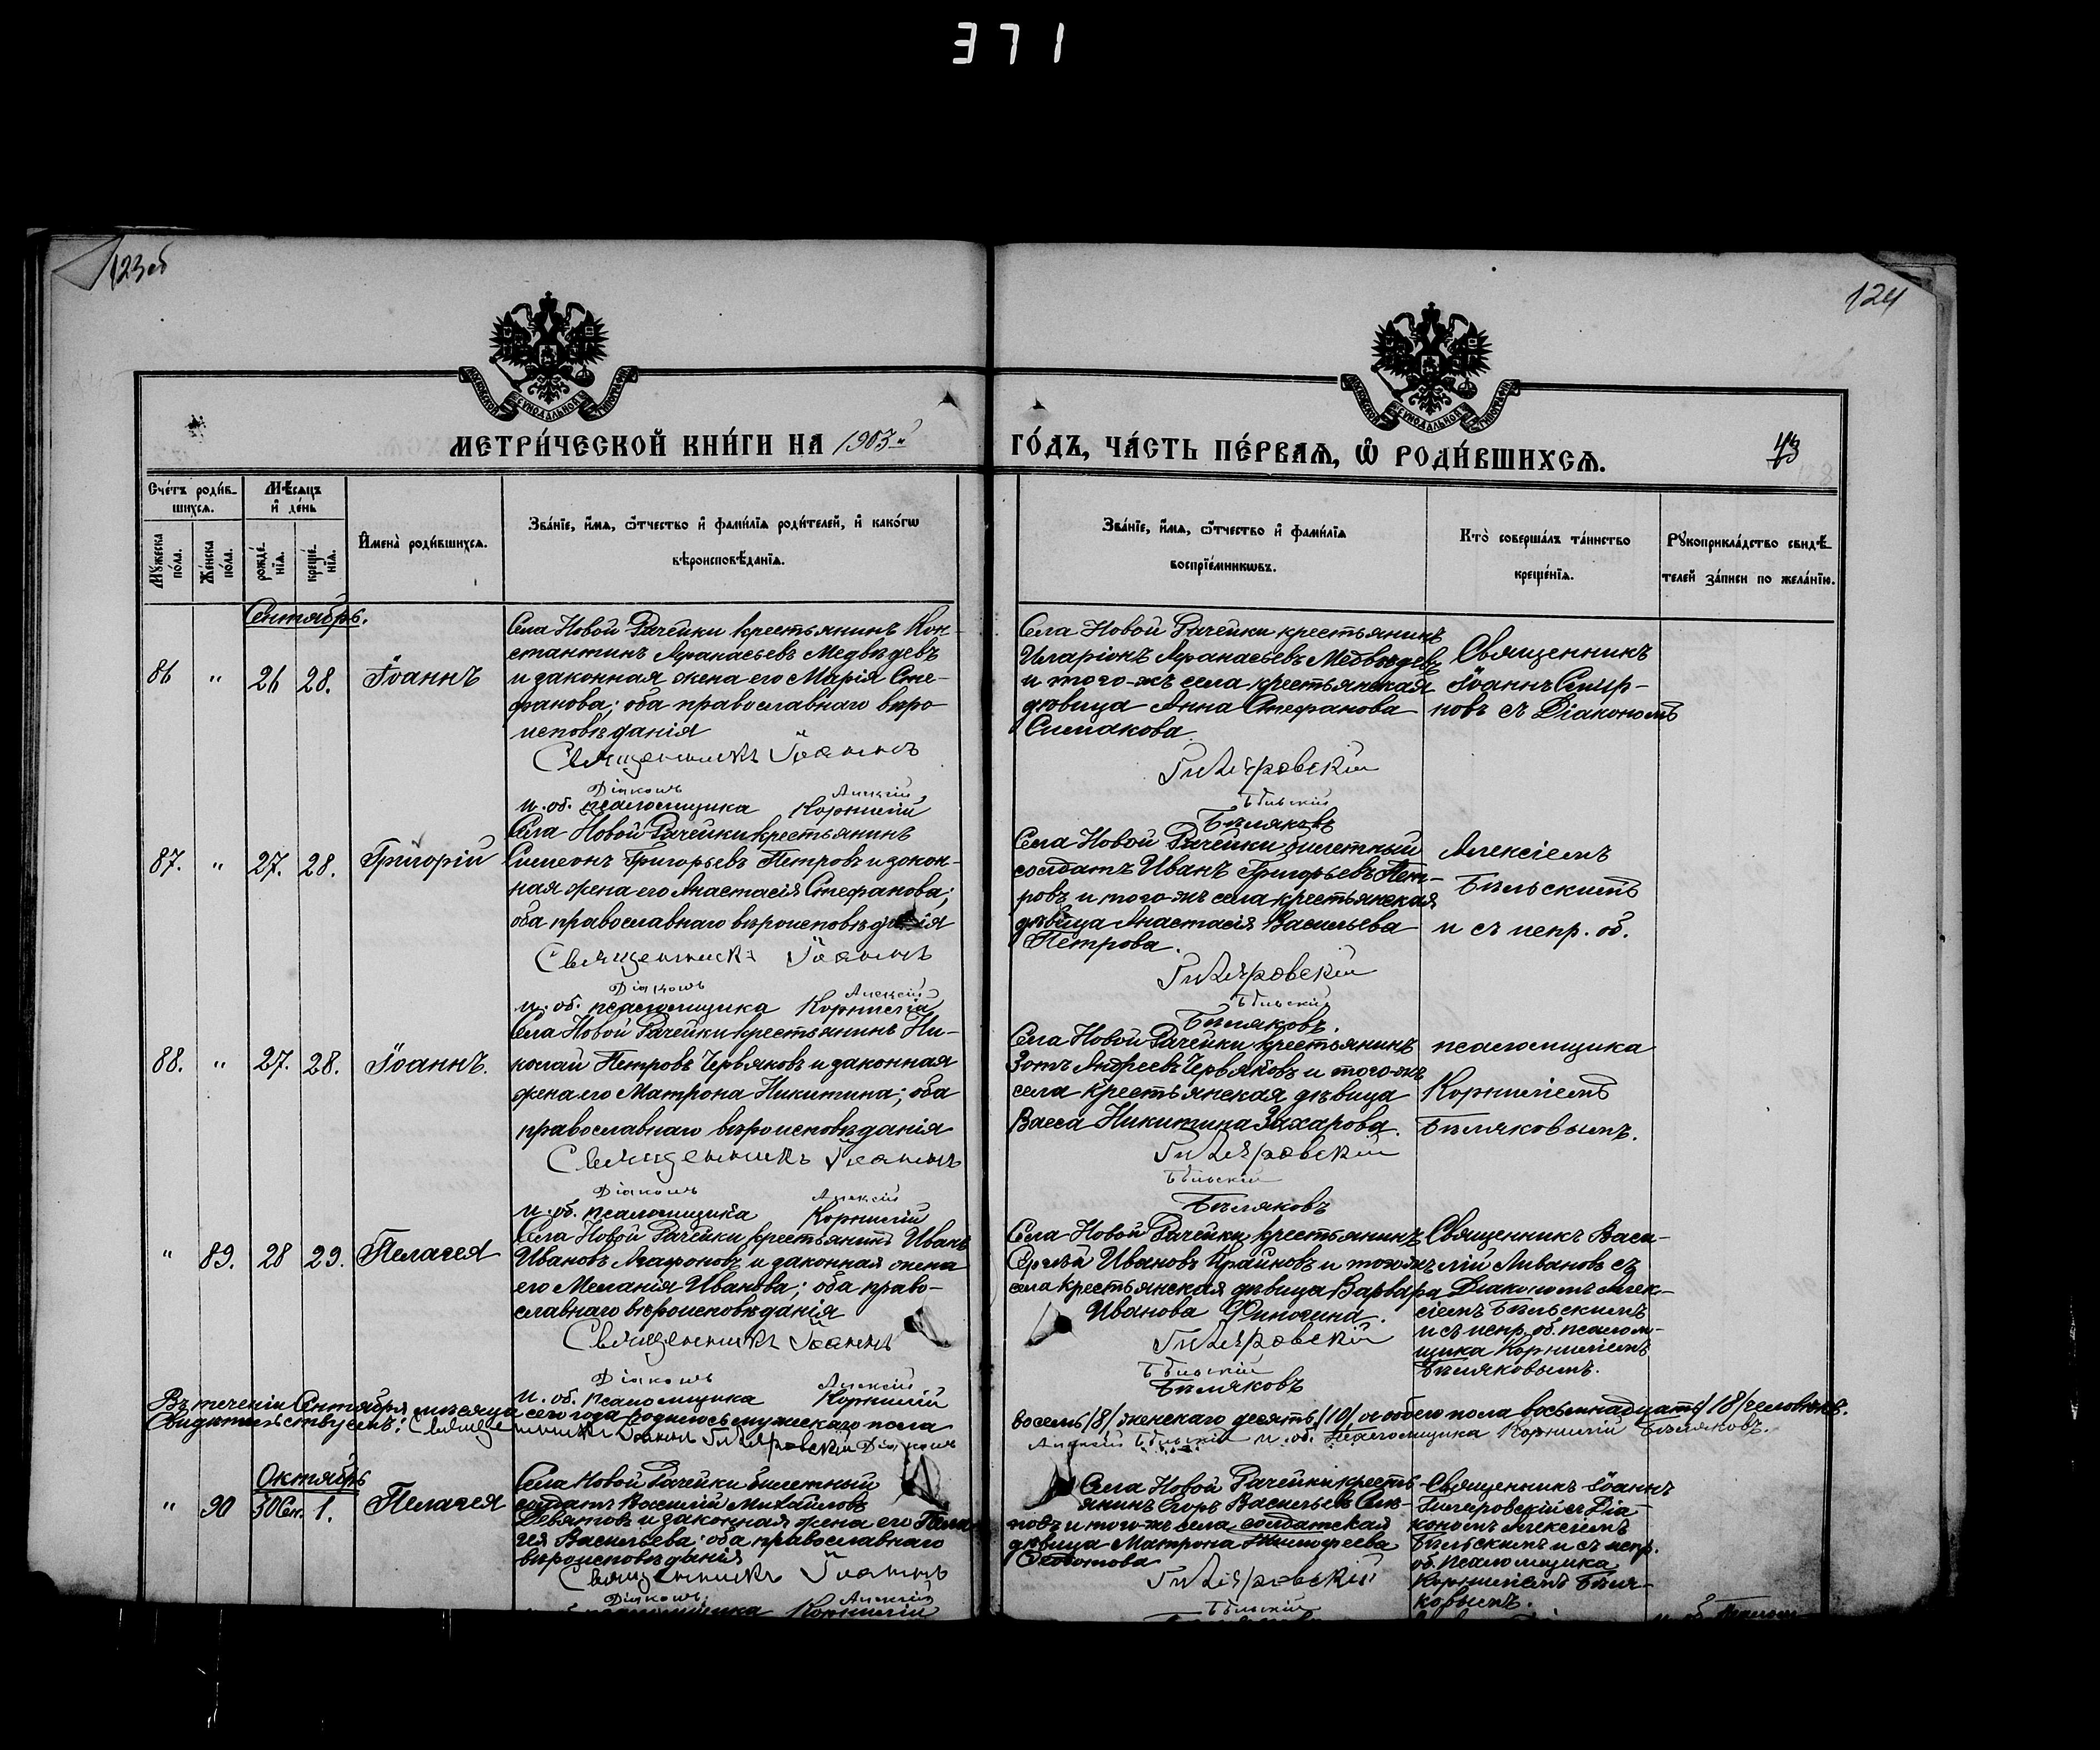 371
123об
124
МОСКОВСКОЙ СѴНОДАЛЬНОЙ ТИПОГРАФІИ
МОСКОВСКОЙ СѴНОДАЛЬНОЙ ТИПОГРАФІИ
МЕТРИ́ЧЕСКОЙ КНИ́ГИ НА 1903й
ГО́ДЪ, ЧА́СТЬ ПЕ́РВАѦ, Ѽ РОДИ́ВШИХСѦ.
43
Сче́тъ роди́в-
шихсѧ.
Мѣ́сѧцъ
и҆ де́нь
Мꙋ́жеска по́ла.
Же́нска по́ла.
рожде́-нїѧ.
креще́-нїѧ.
И҆мена̀ роди́вшихсѧ.
Зва́нїе, и҆́мѧ, ѻ҆́тчество и҆ фами́лїѧ роди́телей, и҆ како́гѡ
вѣроисповѣ́данїѧ.
Зва́нїе, и҆́мѧ, ѻ҆́тчество и҆ фами́лїѧ
воспрїе́мникѡвъ.
Кто̀ соверша́лъ та́инство
креще́нїѧ.
Рꙋкоприкла́дство свидѣ́-
телей за́писи по жела́нїю.
Сентябрь.
86 " 26 28. Іоаннъ
Села Новой Рачейки крестьянинъ Кон-
стантинъ Аѳанасьевъ Медвѣдевъ
и законная жена его Марія Сте-
фанова; оба православнаго вѣро
исповѣданія
Священникъ Іоаннъ
Діаконъ Алексій
и. об. псаломщика Корнилій
Села Новой Рачейки крестьянинъ
Иларіонъ Аѳанасьевъ Медвѣдевъ
и того-жъ села крестьянская
дѣвица Анна Стефанова
Симакова.
Гиляровскій
Бѣльскій
Бѣляковъ
Священникъ
Іоаннъ
новъ съ Діакономъ
87. " 27. 28. Григорій
Села Новой Рачейки крестьянинъ
Симеонъ Григорьевъ Петровъ и закон-
ная жена его Анастасія Стефанова;
оба православнаго вѣроисповѣданія
Священникъ Іоаннъ
Діаконъ Алексій
и. об. псаломщика Корнилій
Села Новой Рачейки билетный
солдатъ Иванъ Григорьевъ Пет-
ровъ и того-жъ села крестьянская
дѣвица Анастасія Васильева
Петрова.
Гиляровскій
Бѣльскій
Бѣляковъ.
Алексіемъ
Бѣльскимъ
и съ испр. об.
88. " 27. 28. Іоаннъ.
Села Новой Рачейки крестьянинъ Ни-
колай Петровъ Червяковъ и законная
жена его Матрона Никитина; оба
православнаго вѣроисповѣданія
Священникъ Іоаннъ
Діаконъ Алексій
и. об. псаломщика Корнилій
Села Новой Рачейки крестьянинъ
Зотъ Андреевъ Червяковъ и того-жъ
села крестьянская дѣвица
Васса Никитина Захарова.
Гиляровскій
Бѣльскій
Бѣляковъ
псаломщика
Корниліемъ
Бѣляковымъ.
" 89. 28 29. Пелагея
Села Новой Рачейки крестьянинъ Иванъ
Ивановъ Агафоновъ и законная жена
его Меланія Иванова; оба право-
славнаго вѣроисповѣданія
Священникъ Іоаннъ
Діаконъ Алексій
и. об. псаломщика Корнилій
Села Новой Рачейки крестьянинъ
Сергѣй Ивановъ Крайновъ и тогожъ
села крестьянская дѣвица Варвара
Иванова Финогина.
Гиляровскій
Бѣльскій
Бѣляковъ
Священникъ Васи-
лій Ливановъ съ
Діакономъ Алек-
сіемъ Бѣльскимъ
и съ испр. об. псалом-
щика Корниліемъ
Бѣляковымъ.
Въ теченіи Сентября мѣсяца сего года родилось мужескаго пола
восемь /8/ женскаго десять /10/, а обоего пола восьмнадцать /18/ человѣкъ.
Свидѣтельствуемъ: Священникъ Іоаннъ Гиляровскій Діаконъ
Алексій Бѣльскій и. об. псаломщика Корнилій Бѣляковъ.
Октябрь
" 90 30 Сен. 1. Пелагея
Села Новой Рачейки билетный
солдатъ Василій Михайловъ
Девятовъ и законная жена его Пела
гея Васильева; оба православнаго
вѣроисповѣданія
Священникъ Іоаннъ
Діаконъ Алексій
псаломщика Корнилій
Села Новой Рачейки кресть
янинъ Егоръ Васильевъ
новъ и того-жъ села солдатская
дѣвица Матрона Тимофеева
Гиляровскій
Бѣльскій
Священникъ Іоаннъ
Гиляровскій съ Діа
кономъ Алексіемъ
Бѣльскимъ и съ испр.
об. псаломщика
Корниліемъ Бѣля-
ковымъ.